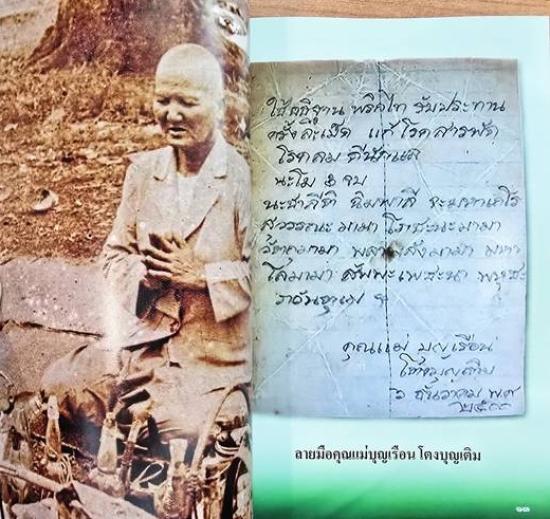 ใช้อธิฐาน พริกไท รับประทาน
ครั้งละเม็ด แก้โรคสารพัด
โรคลม
นะโม ๓ จบ
นะชาลีติ ฉิมพาลี จะมหาเถโร
สุวรรณะ มามา โภชะนะ มามา
วัตถุมามา พลาพลังมามา มหา
โภมามา สัพพะ
คุณแม่ บุญเรือน
โตงบุญเติม
๖ ธันวาคม พ.ศ
ลายมือคุณแม่บุญเรือน โตงบุญเติม